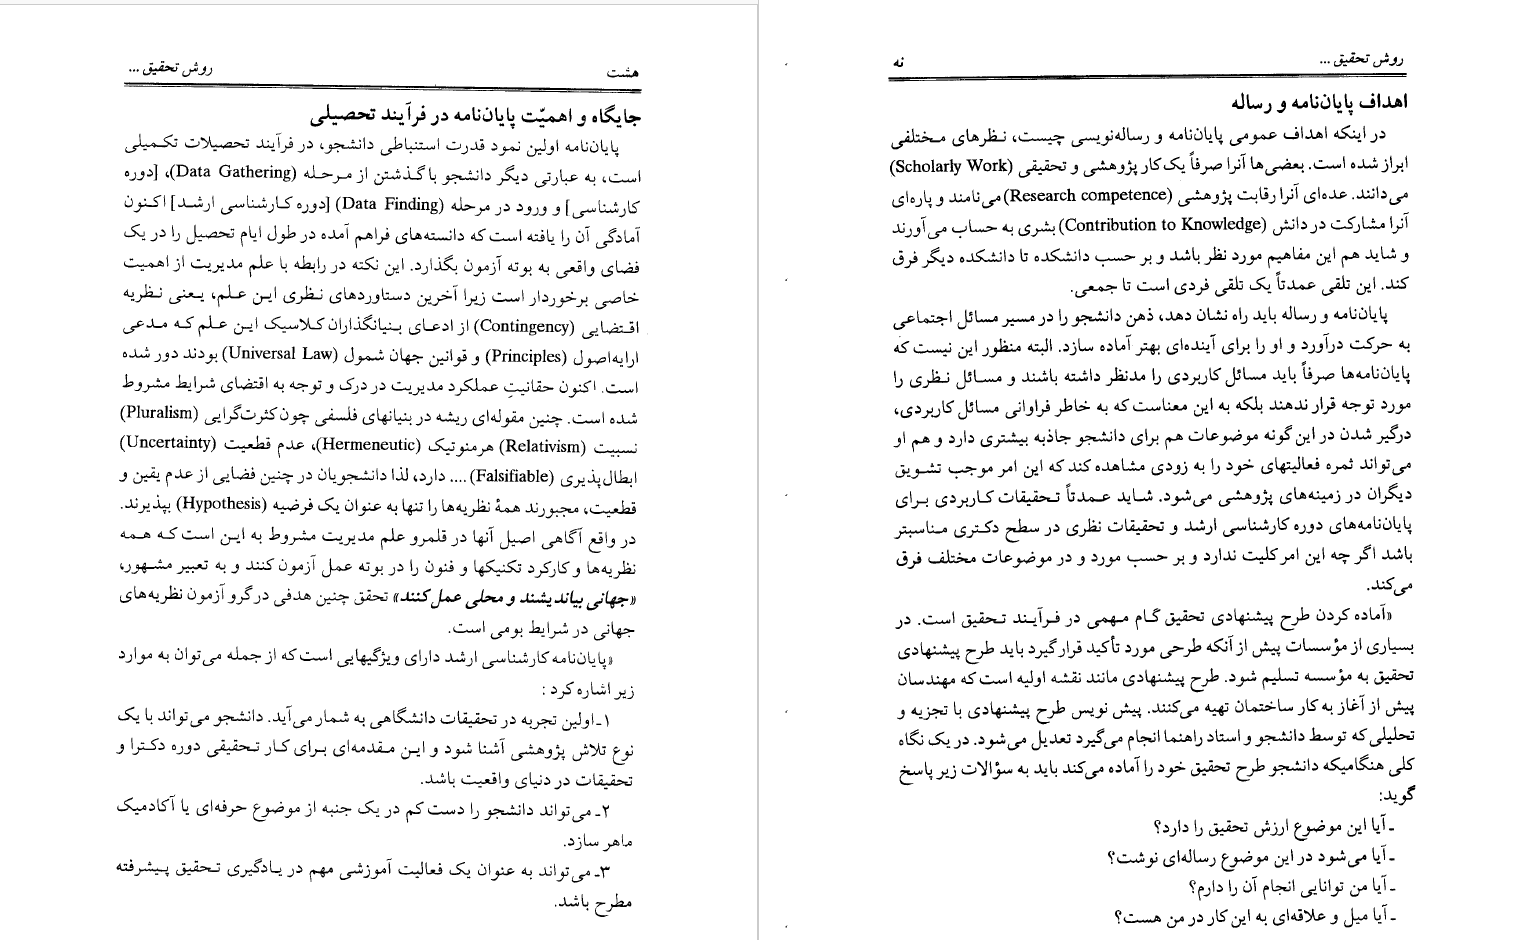 هشت
روش تحقیق ...
جایگاه و اهمیّت پایان‌نامه در فرآیند تحصیلی
پایان‌نامه اولین نمود قدرت استنباطی دانشجو، در فرآیند تحصیلات تکمیلی
است، به عبارتی دیگر دانشجو با گذشتن از مرحله (Data Gathering)، [دوره
کارشناسی] و ورود در مرحله (Data Finding) [دوره کارشناسی ارشد] اکنون
آمادگی آن را یافته است که دانسته‌های فراهم آمده در طول ایام تحصیل را در یک
فضای واقعی به بوته آزمون بگذارد. این نکته در رابطه با علم مدیریت از اهمیت
خاصی برخوردار است زیرا آخرین دستاوردهای نظری این علم، یعنی نظریه
اقتضایی (Contingency) از ادعای بنیانگذاران کلاسیک این علم که مدعی
ارایه‌اصول (Principles) و قوانین جهان شمول (Universal Law) بودند دور شده
است. اکنون حقانیتِ عملکرد مدیریت در درک و توجه به اقتضای شرایط مشروط
شده است. چنین مقوله‌ای ریشه در بنیانهای فلسفی چون کثرت‌گرایی (Pluralism)
نسبیت (Relativism) هرمنوتیک (Hermeneutic)، عدم قطعیت (Uncertainty)
ابطال‌پذیری (Falsifiable) .... دارد، لذا دانشجویان در چنین فضایی از عدم یقین و
قطعیت، مجبورند همهٔ نظریه‌ها را تنها به عنوان یک فرضیه (Hypothesis) بپذیرند.
در واقع آگاهی اصیل آنها در قلمرو علم مدیریت مشروط به این است که همه
نظریه‌ها و کارکرد تکنیکها و فنون را در بوته عمل آزمون کنند و به تعبیر مشهور،
«جهانی بیاندیشند و محلی عمل کنند» تحقق چنین هدفی درگرو آزمون نظریه‌های
جهانی در شرایط بومی است.
«پایان‌نامه کارشناسی ارشد دارای ویژگیهایی است که از جمله می‌توان به موارد
زیر اشاره کرد :
۱ـ اولین تجربه در تحقیقات دانشگاهی به شمار می‌آید. دانشجو می‌تواند با یک
نوع تلاش پژوهشی آشنا شود و این مقدمه‌ای برای کار تحقیقی دوره دکترا و
تحقیقات در دنیای واقعیت باشد.
۲ـ می‌تواند دانشجو را دست کم در یک جنبه از موضوع حرفه‌ای یا آکادمیک
ماهر سازد.
۳ـ می‌تواند به عنوان یک فعالیت آموزشی مهم در یادگیری تحقیق پیشرفته
مطرح باشد.
روش تحقیق ...
نه
اهداف پایان‌نامه و رساله
در اینکه اهداف عمومی پایان‌نامه و رساله‌نویسی چیست، نظرهای مختلفی
ابراز شده است. بعضی‌ها آنرا صرفاً یک کار پژوهشی و تحقیقی (Scholarly Work)
می‌دانند. عده‌ای آنرا رقابت پژوهشی (Research competence) می‌نامند و پاره‌ای
آنرا مشارکت در دانش (Contribution to Knowledge) بشری به حساب می‌آورند
و شاید هم این مفاهیم مورد نظر باشد و بر حسب دانشکده تا دانشکده دیگر فرق
کند. این تلقی عمدتاً یک تلقی فردی است تا جمعی.
پایان‌نامه و رساله باید راه نشان دهد، ذهن دانشجو را در مسیر مسائل اجتماعی
به حرکت درآورد و او را برای آینده‌ای بهتر آماده سازد. البته منظور این نیست که
پایان‌نامه‌ها صرفاً باید مسائل کاربردی را مدنظر داشته باشند و مسائل نظری را
مورد توجه قرار ندهند بلکه به این معناست که به خاطر فراوانی مسائل کاربردی،
درگیر شدن در این گونه موضوعات هم برای دانشجو جاذبه بیشتری دارد و هم او
می‌تواند ثمره فعالیتهای خود را به زودی مشاهده کند که این امر موجب تشویق
دیگران در زمینه‌های پژوهشی می‌شود. شاید عمدتاً تحقیقات کاربردی برای
پایان‌نامه‌های دوره کارشناسی ارشد و تحقیقات نظری در سطح دکتری مناسبتر
باشد اگر چه این امر کلیت ندارد و بر حسب مورد و در موضوعات مختلف فرق
می‌کند.
«آماده کردن طرح پیشنهادی تحقیق گام مهمی در فرآیند تحقیق است. در
بسیاری از مؤسسات پیش از آنکه طرحی مورد تأکید قرار گیرد باید طرح پیشنهادی
تحقیق به مؤسسه تسلیم شود. طرح پیشنهادی مانند نقشه اولیه است که مهندسان
پیش از آغاز به کار ساختمان تهیه می‌کنند. پیش نویس طرح پیشنهادی با تجزیه و
تحلیلی که توسط دانشجو و استاد راهنما انجام می‌گیرد تعدیل می‌شود. در یک نگاه
کلی هنگامیکه دانشجو طرح تحقیق خود را آماده می‌کند باید به سؤالات زیر پاسخ
گوید:
ـ آیا این موضوع ارزش تحقیق را دارد؟
ـ آیا می‌شود در این موضوع رساله‌ای نوشت؟
ـ آیا من توانایی انجام آن را دارم؟
ـ آیا میل و علاقه‌ای به این کار در من هست؟